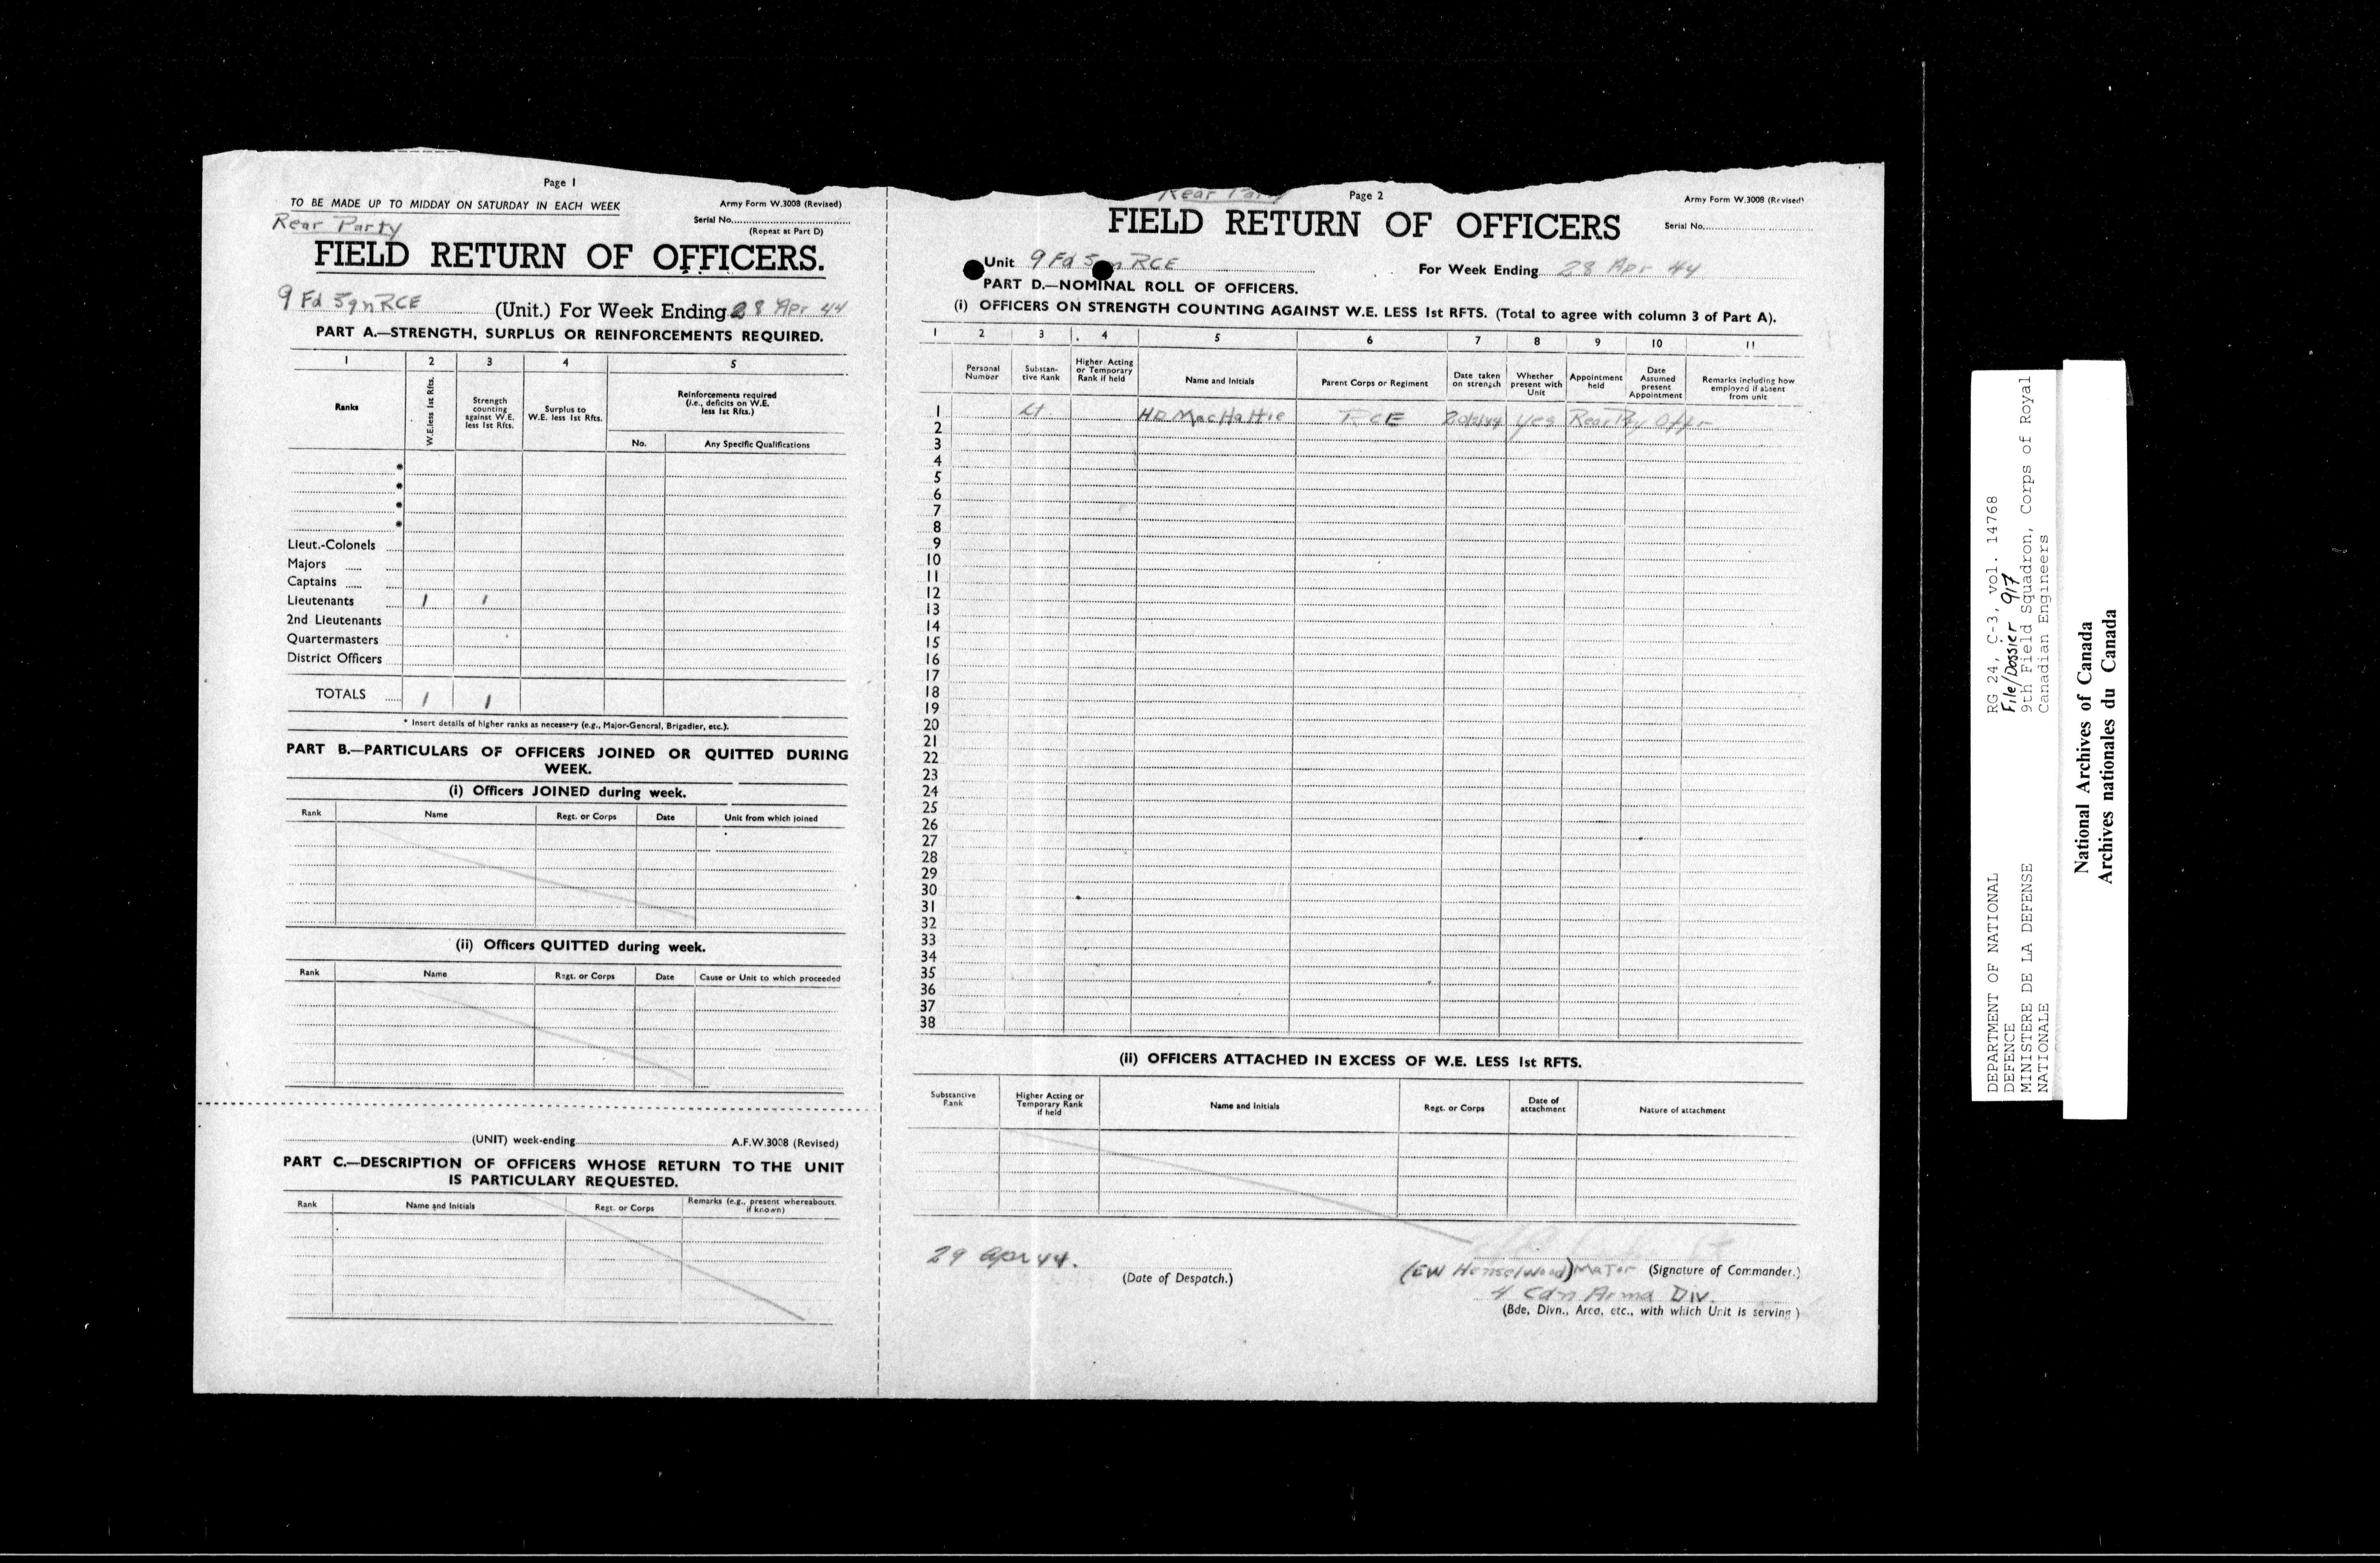 Page 1
TO BE MADE UP TO MIDDAY ON SATURDAY IN EACH WEEK
Army Form W.3008 (Revised)
Serial No.
(Repeat at Part D)
Rear Party
FIELD RETURN OF OFFICERS.
9 Fd Sqn RCE (Unit.) For Week Ending 28 Apr 44
PART A.—STRENGTH, SURPLUS OR REINFORCEMENTS REQUIRED.
1 2 3 4 5
Ranks
W.E. less 1st Rfts.
Strength counting against W.E. less 1st Rfts.
Surplus to W.E. less 1st Rfts.
Reinforcements required (i.e., deficits on W.E. less 1st Rfts.)
No. Any Specific Qualifications
*
*
*
*
Lieut.-Colonels
Majors
Captains
Lieutenants 1 1
2nd Lieutenants
Quartermasters
District Officers
TOTALS 1 1
* Insert details of higher ranks as necessary (e.g., Major-General, Brigadier, etc.).
PART B.—PARTICULARS OF OFFICERS JOINED OR QUITTED DURING
WEEK.
(i) Officers JOINED during week.
Rank Name Regt. or Corps Date Unit from which joined
(ii) Officers QUITTED during week.
Rank Name Regt. or Corps Date Cause or Unit to which proceeded
(UNIT) week-ending A.F.W.3008 (Revised)
PART C.—DESCRIPTION OF OFFICERS WHOSE RETURN TO THE UNIT
IS PARTICULARY REQUESTED.
Rank Name and Initials Regt. or Corps Remarks (e.g., present whereabouts, if known)
Rear Party
Page 2
Army Form W.3008 (Revised)
FIELD RETURN OF OFFICERS
Serial No.
Unit 9 Fd Sqn RCE For Week Ending 28 Apr 44
PART D.—NOMINAL ROLL OF OFFICERS.
(i) OFFICERS ON STRENGTH COUNTING AGAINST W.E. LESS 1st RFTS. (Total to agree with column 3 of Part A).
1 2 3 4 5 6 7 8 9 10 11
Personal Number
Substan-tive Rank
Higher Acting or Temporary Rank if held
Name and Initials
Parent Corps or Regiment
Date taken on strength
Whether present with Unit
Appointment held
Date Assumed present Appointment
Remarks including how employed if absent from unit
1 Lt MacHattie RCE yes Rear Pty Offr
2
3
4
5
6
7
8
9
10
11
12
13
14
15
16
17
18
19
20
21
22
23
24
25
26
27
28
29
30
31
32
33
34
35
36
37
38
(ii) OFFICERS ATTACHED IN EXCESS OF W.E. LESS 1st RFTS.
Substantive Rank
Higher Acting or Temporary Rank if held
Name and Initials
Regt. or Corps
Date of attachment
Nature of attachment
29 Apr 44.
(Date of Despatch.)
(EW Henselwood) Major (Signature of Commander.)
4 Cdn Armd Div.
(Bde, Divn., Area, etc., with which Unit is serving)
DEPARTMENT OF NATIONAL RG 24, C-3, vol. 14768
DEFENCE File/Dossier 917
MINISTERE DE LA DEFENSE 9th Field Squadron, Corps of Royal
NATIONALE Canadian Engineers
National Archives of Canada
Archives nationales du Canada